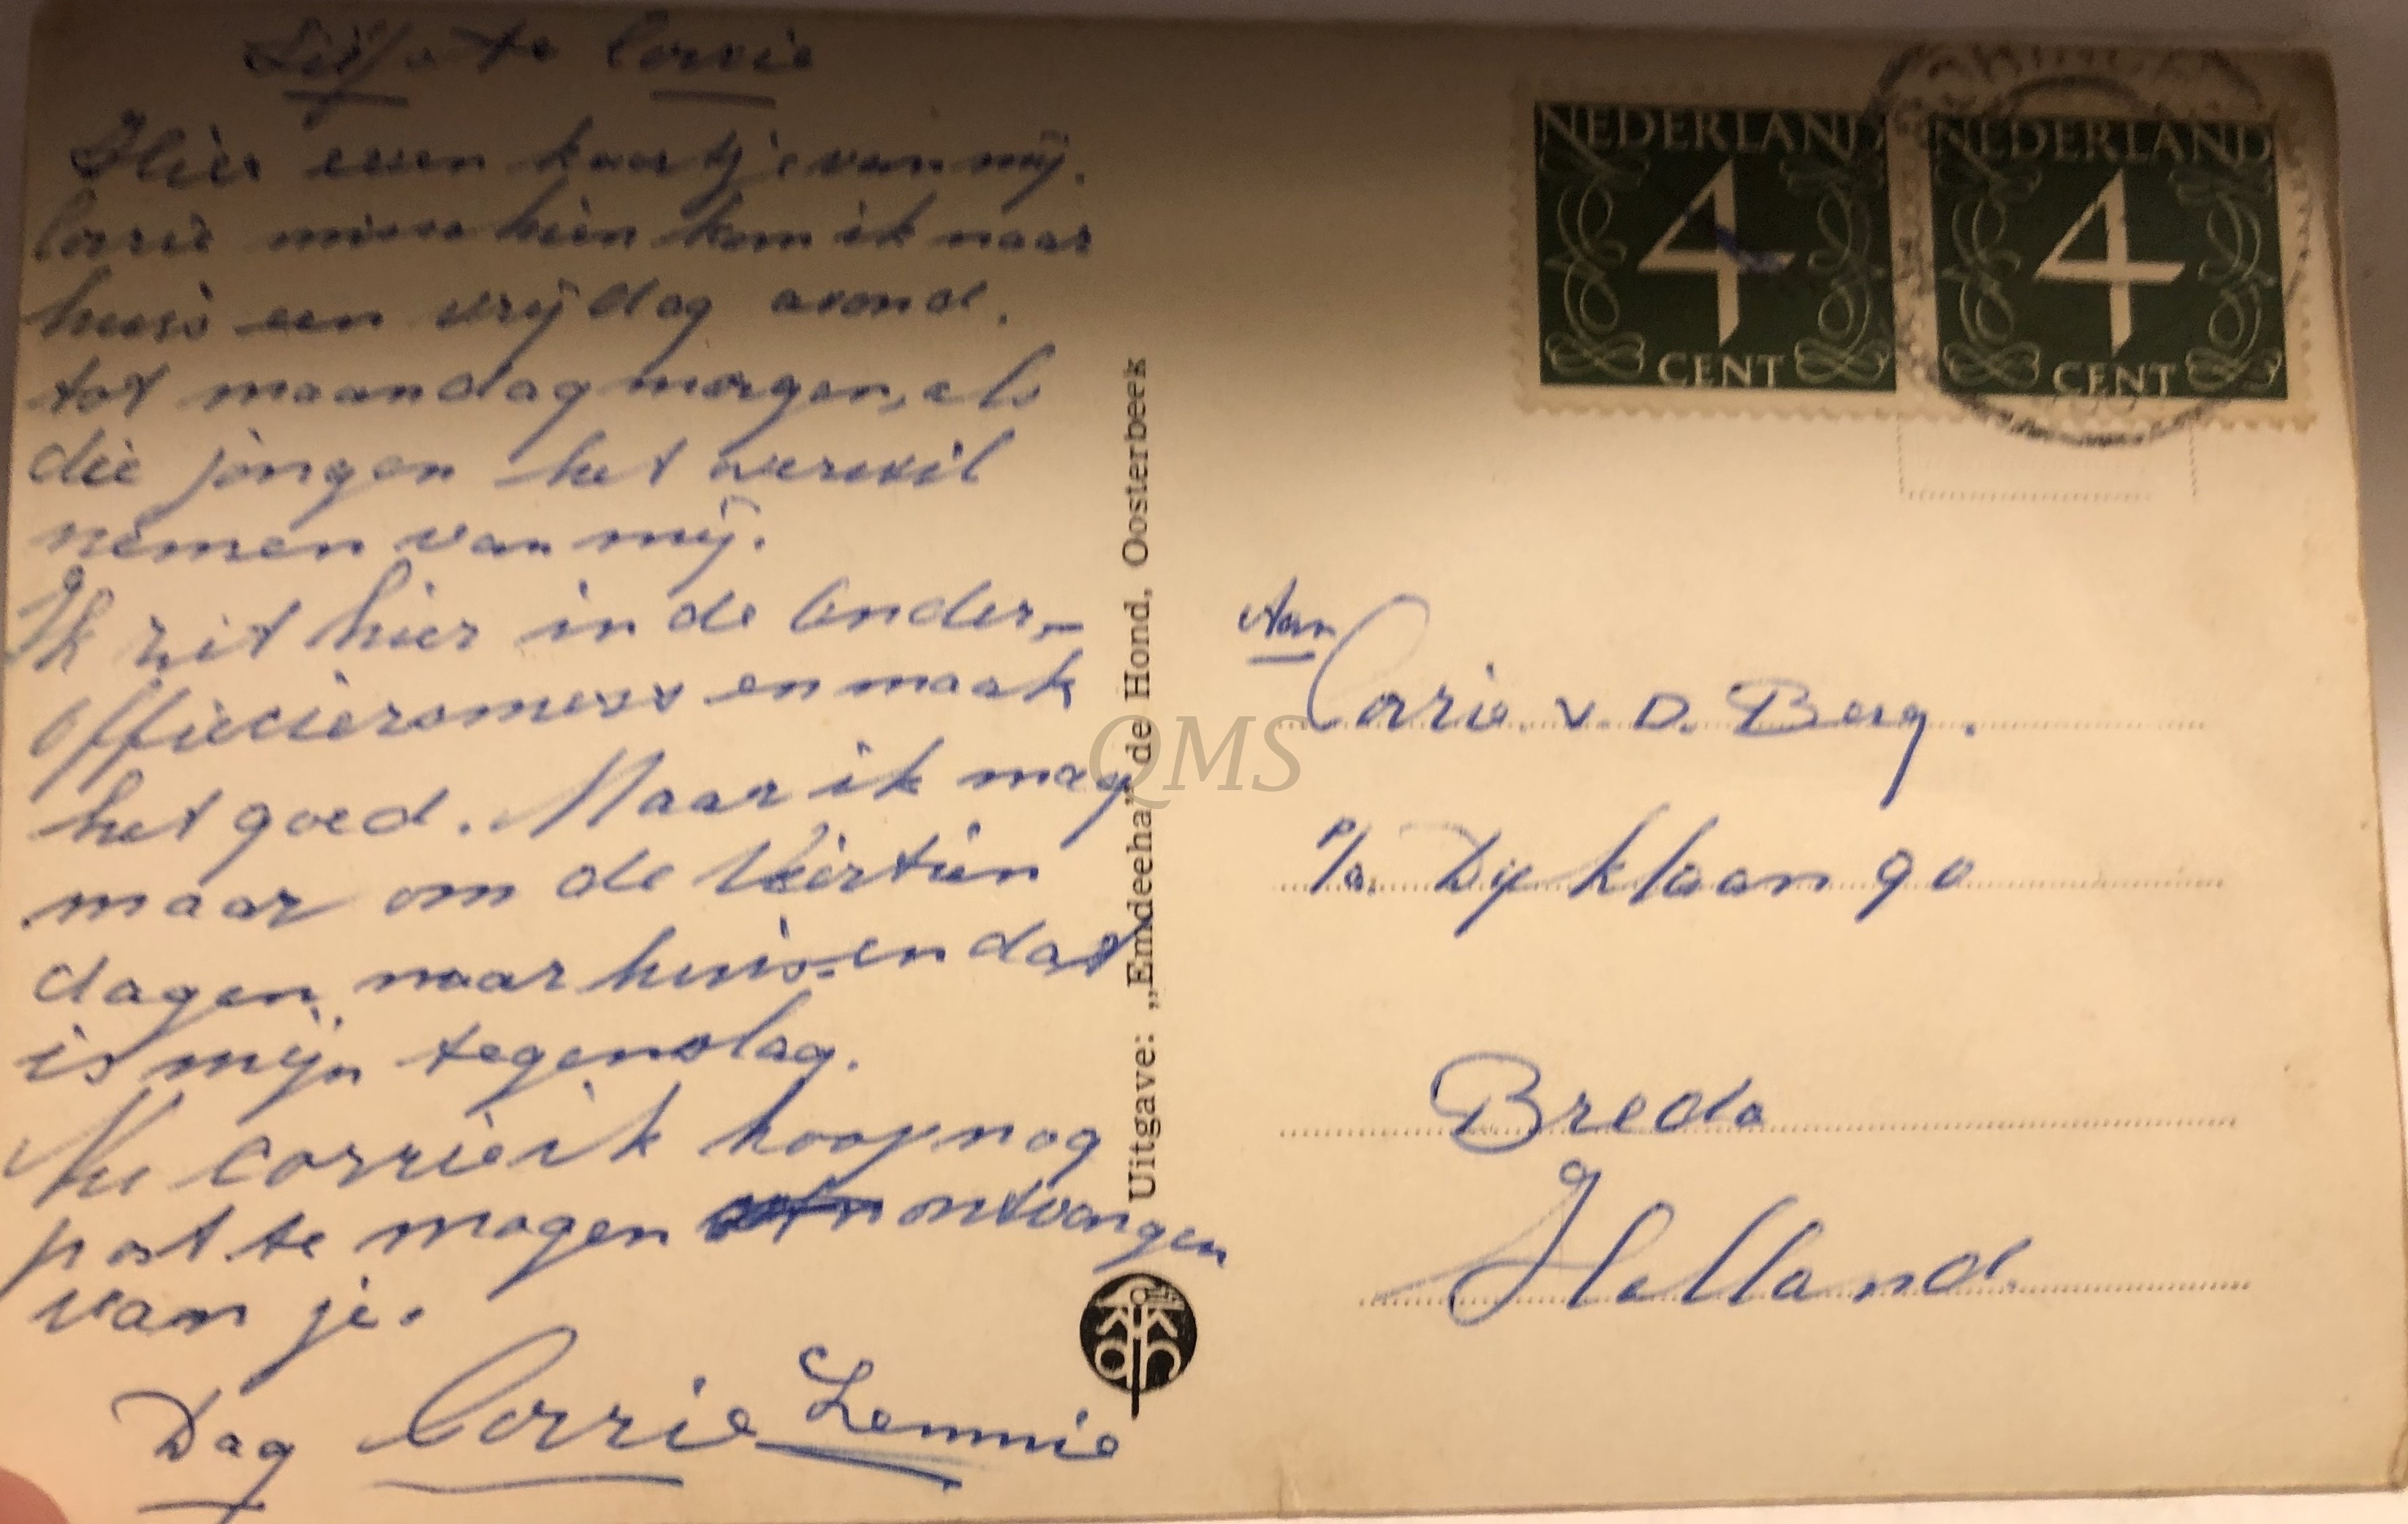 Liefste Corrie
Hier even kaartje van mij.
Corrie misschien kom ik naar
huis een vrijdag avond.
tot maandag morgen, als
die jongen het over wil
nemen van mij.
Ik zit hier in de Onder-
officiersmess en maak
het goed. Maar ik mag
maar om de Viertien
dagen naar huis en dat
is mijn tegenslag.
Nu Corrie ik hoop nog
post te mogen ontvangen
van je.
Dag Corrie Lennie
Uitgave: „Emdeeha" de Hond, Oosterbeek
NEDERLAND NEDERLAND
4 4
CENT CENT
Aan
Corrie v. D. Berg.
P/a. Dyklaan 90
Breda
Holland.
QMS